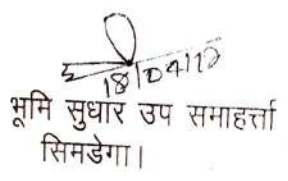 18/04/12
भूमि सुधार उप समाहर्त्ता
सिमडेगा।